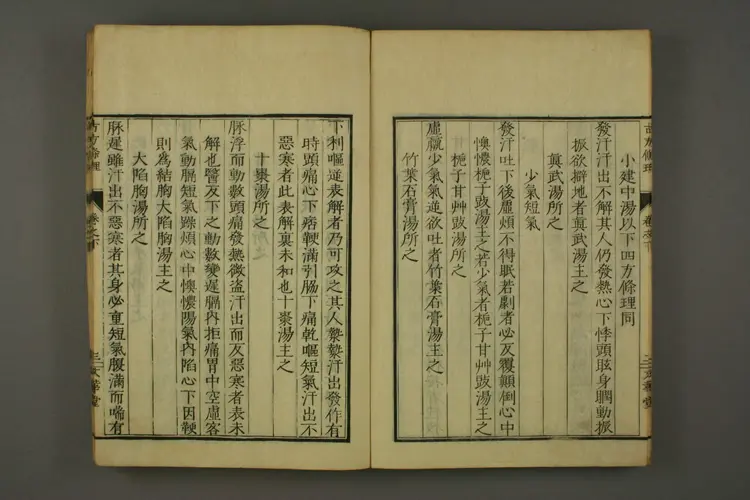 小建中湯以下四方條理同
發汗汗出不解其人仍發熱心下悸頭眩身瞤動振
振欲擗地者眞武湯主之
眞武湯所之
少氣短氣
發汗吐下後虛煩不得眠若劇者必反覆顚倒心中
懊憹梔子豉湯主之若少氣者梔子甘艸豉湯主之
梔子甘艸豉湯所之
虛羸少氣氣逆欲吐者竹葉石膏湯主之
竹葉石膏湯所之
古方條理
卷之下
下利嘔逆表解者乃可攻之其人漐漐汗出發作有
時頭痛心下痞鞕滿引脇下痛乾嘔短氣汗出不
惡寒者此表解裏未和也十棗湯主之
十棗湯所之
脉浮而動數頭痛發熱微盜汗出而反惡寒者表未
解也醫反下之動數變遲膈內拒痛胃中空虛客
氣動膈短氣躁煩心中懊憹陽氣內陷心下因鞕
則爲結胸大陷胸湯主之
大陷胸湯所之
脉遲雖汗出不惡寒者其身必重短氣腹滿而喘有
古方條理
卷之下